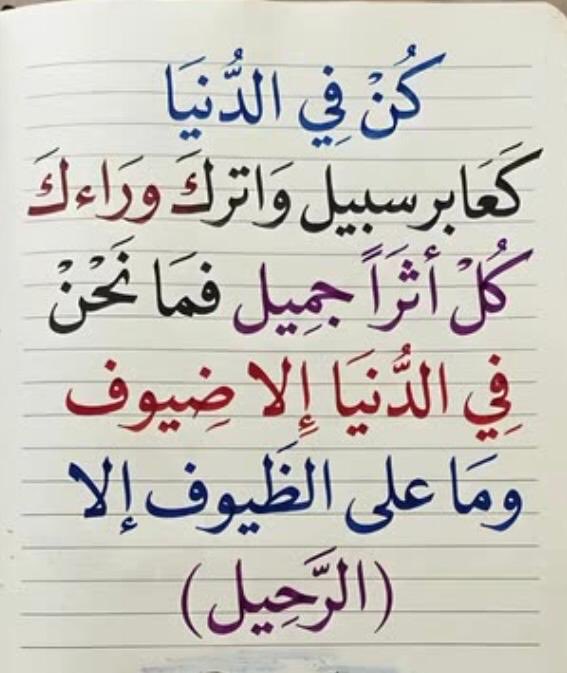 كُنْ فِي الدُّنيَا
كَعَابر سبيل وَاتركَ ورَاءكَ
كُلْ أثرَاً جمِيل فمَا نَحْنْ
فِي الدُّنيَا إِلا ضِيوف
ومَا على الظَيوف إلا
(الرَّحِيل)